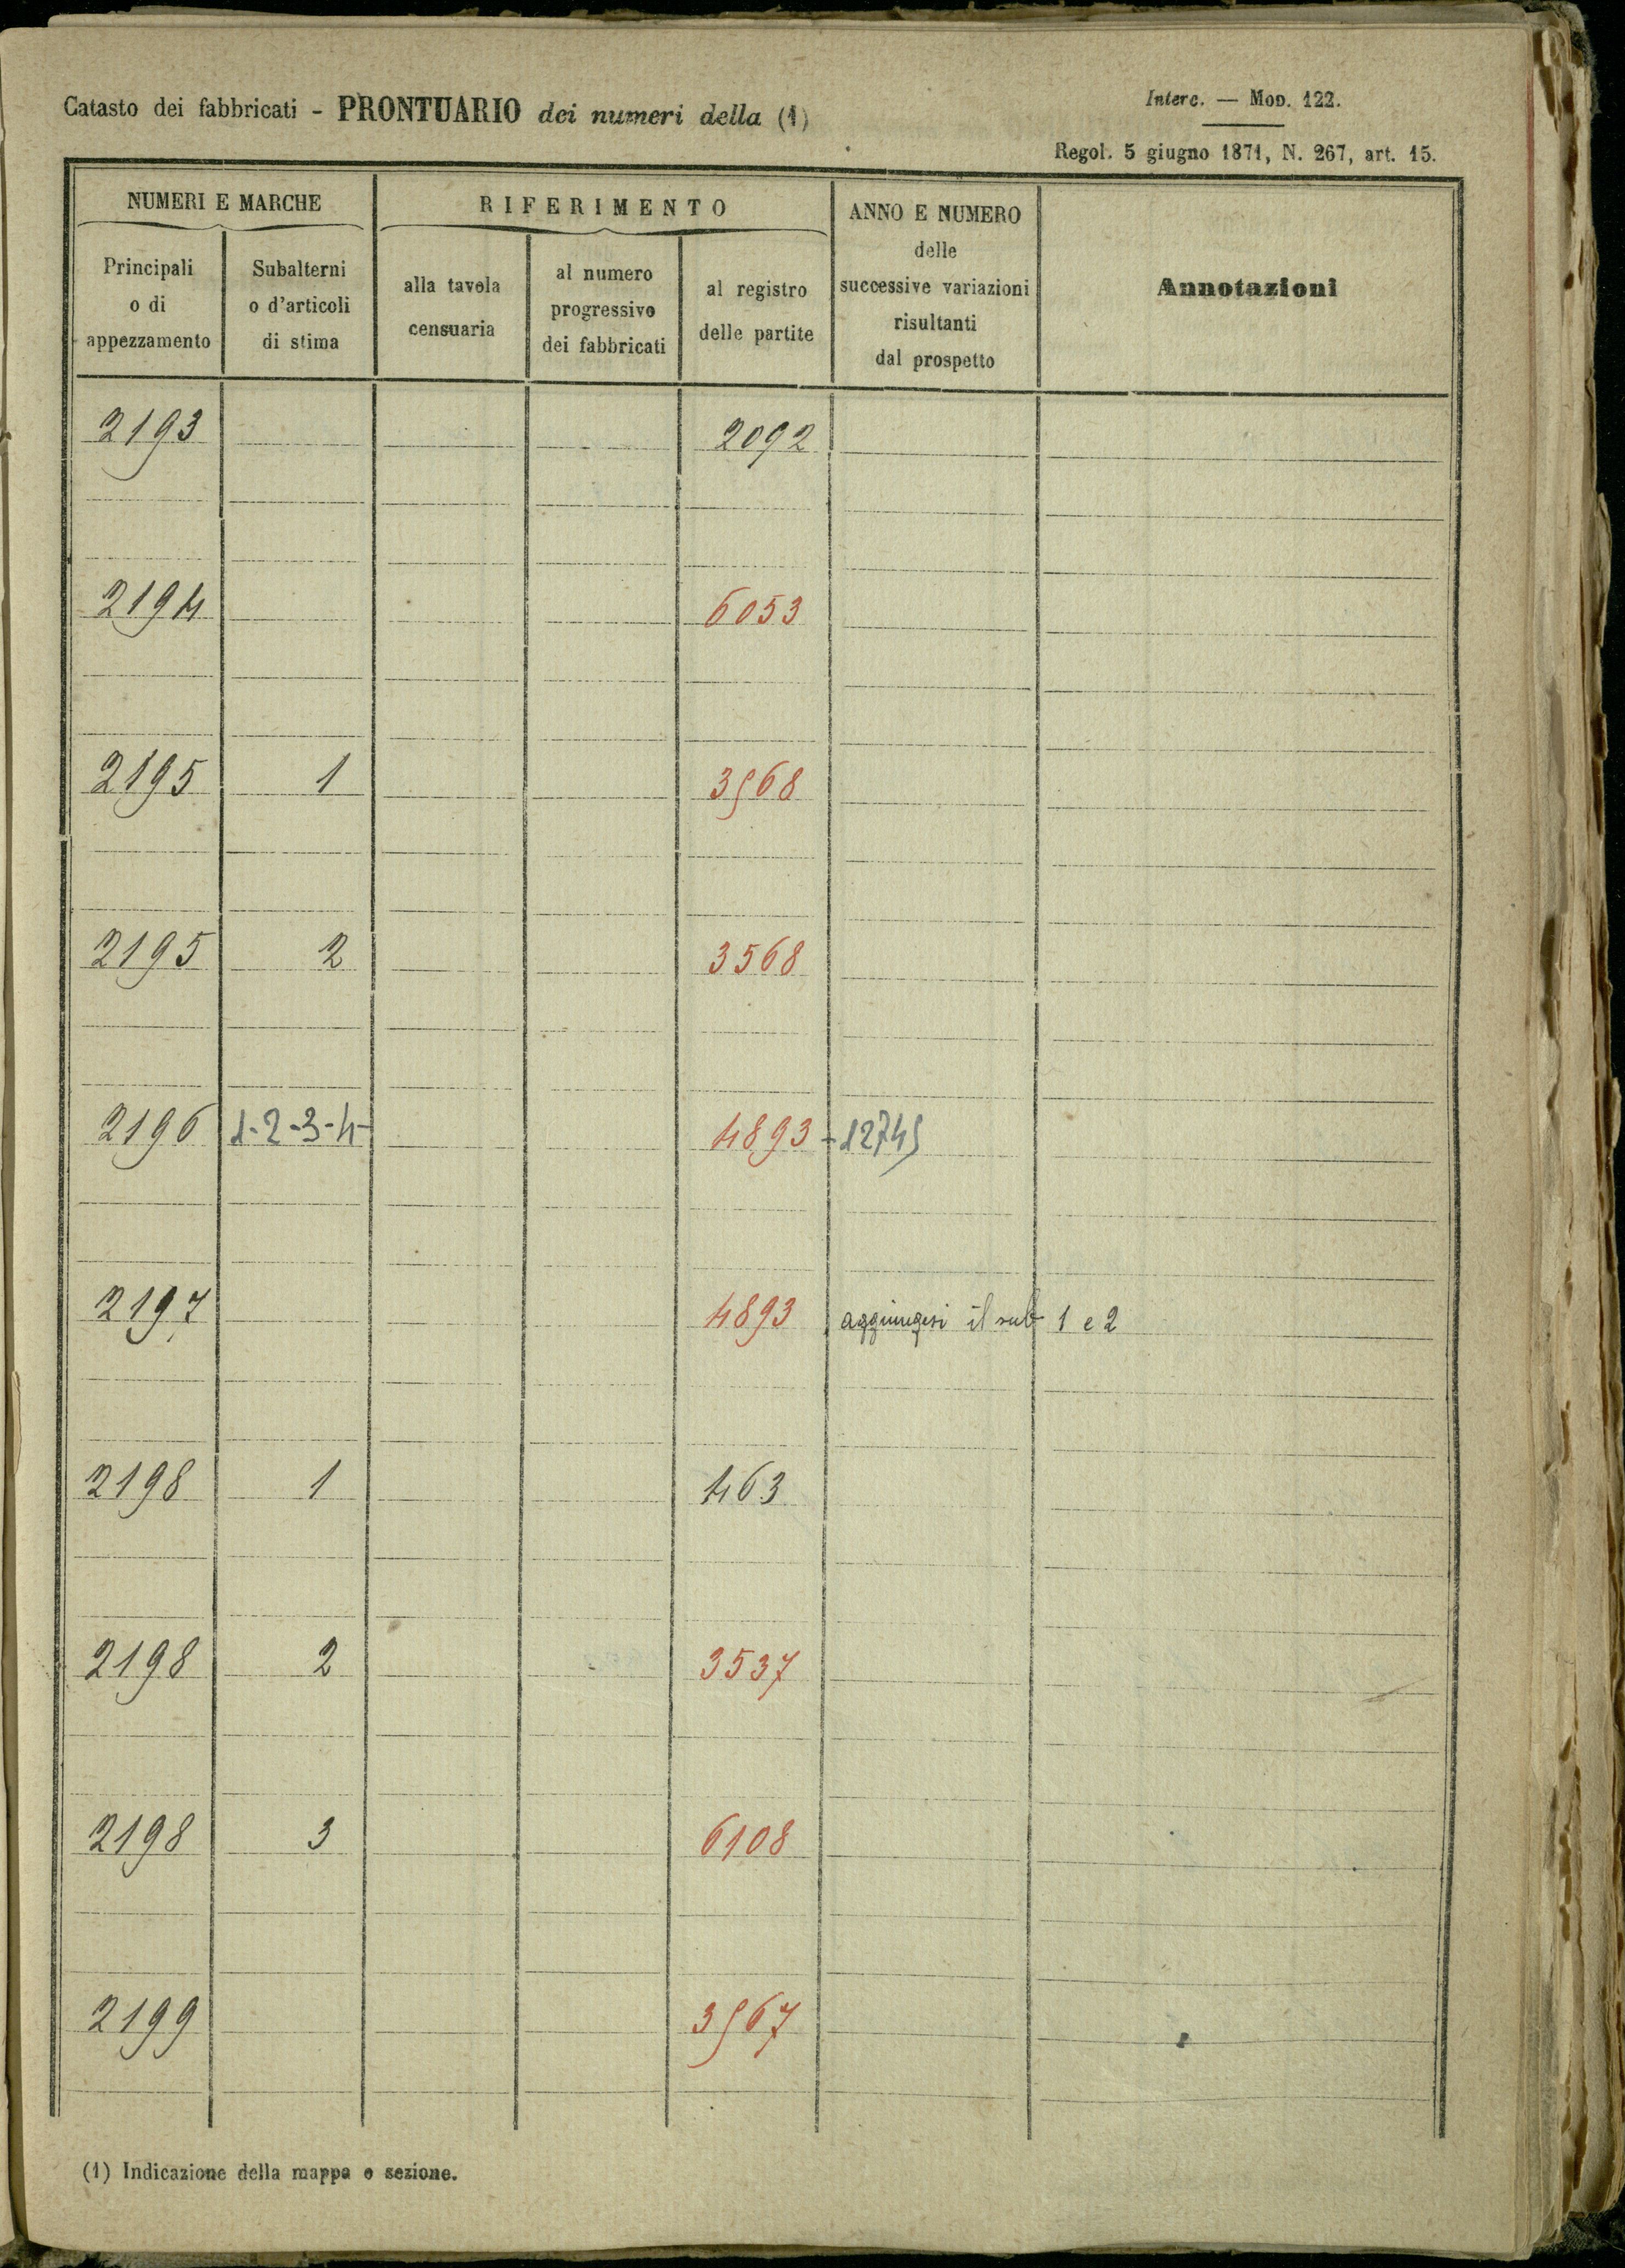 Catasto dei fabbricati - PRONTUARIO dei numeri della (1)
Interc. — Mod. 122.
Regol. 5 giugno 1871, N. 267, art. 15.
NUMERI E MARCHE
Principali
o di
appezzamento
Subalterni
o d'articoli
di stima
RIFERIMENTO
alla tavola
censuaria
al numero
progressivo
dei fabbricati
al registro
delle partite
ANNO E NUMERO
delle
successive variazioni
risultanti
dal prospetto
Annotazioni
2193 2092
2194 6053
2195 1 3568
2195 2 3568
2196 1-2-3-4- 4893 - 12745
2197 4893 aggiungesi il sub 1 e 2
2198 1 463
2198 2 3537
2198 3 6108
2199 3567
(1) Indicazione della mappa o sezione.